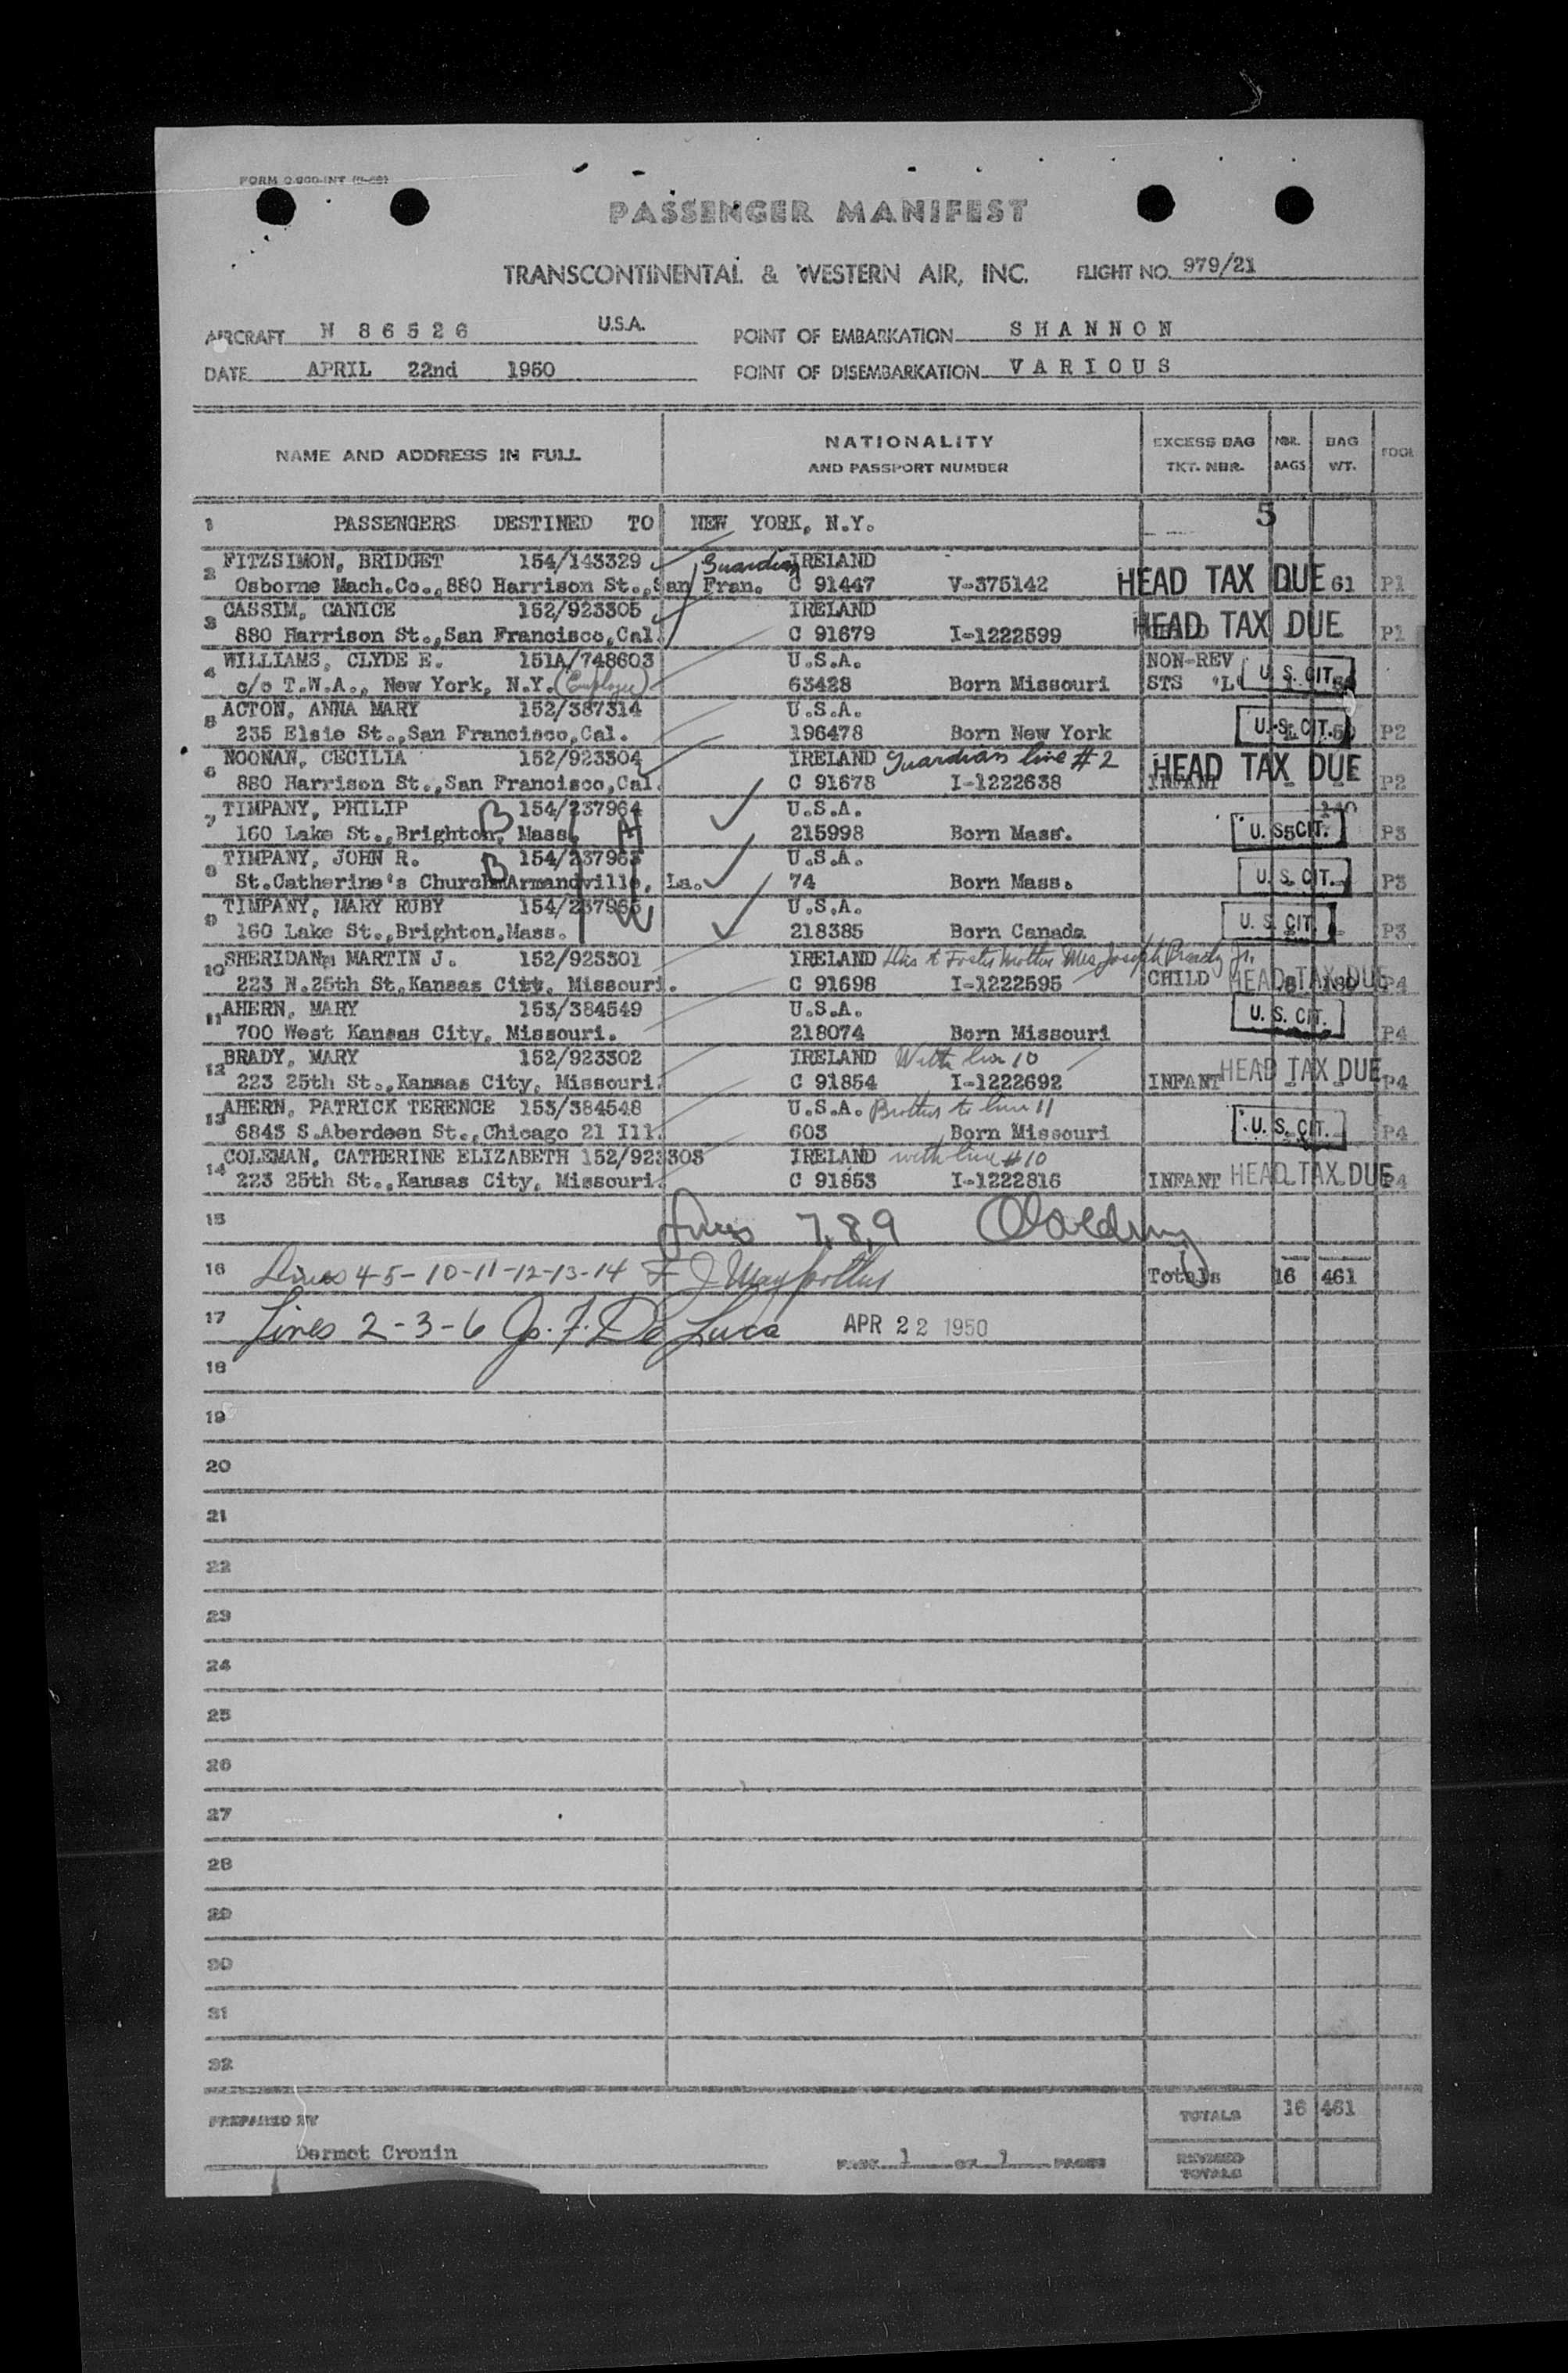 PASSENGER MANIFEST
TRANSCONTINENTAL & WESTERN AIR, INC. FLIGHT NO. 979/21
AIRCRAFT N 86526 U.S.A. POINT OF EMBARKATION SHANNON
DATE APRIL 22nd 1950 POINT OF DISEMBARKATION VARIOUS
NAME AND ADDRESS IN FULL NATIONALITY AND PASSPORT NUMBER EXCESS BAG TKT. NBR. NBR. BAGS BAG WT.
5
1 PASSENGERS DESTINED TO NEW YORK, N.Y.
2 FITZSIMON, BRIDGET 154/143329 Guardian IRELAND
Osborne Mach.Co.,880 Harrison St.,San Fran. C 91447 V-375142 HEAD TAX DUE 61 P1
3 CASSIM, CANICE 152/923305 IRELAND
880 Harrison St.,San Francisco,Cal. C 91679 I-1222599 HEAD TAX DUE P1
4 WILLIAMS, CLYDE E. 151A/748603 U.S.A. NON-REV
c/o T.W.A., New York, N.Y. (Employee) 63428 Born Missouri STS "L" U.S. CIT.
5 ACTON, ANNA MARY 152/387314 U.S.A.
235 Elsie St.,San Francisco,Cal. 196478 Born New York U.S. CIT. P2
6 NOONAN, CECILIA 152/923304 IRELAND Guardian line #2
880 Harrison St.,San Francisco,Cal. C 91678 I-1222638 INFANT HEAD TAX DUE P2
7 TIMPANY, PHILIP B 154/237964 U.S.A. 140
160 Lake St.,Brighton, Mass. 215998 Born Mass. 5 U.S. CIT. P3
8 TIMPANY, JOHN R. B 154/237963 U.S.A.
St.Catherine's Church Armandville, La. 74 Born Mass. U.S. CIT. P3
9 TIMPANY, MARY RUBY 154/237965 U.S.A.
160 Lake St.,Brighton,Mass. W 218385 Born Canada U.S. CIT. P3
10 SHERIDAN, MARTIN J. 152/923301 IRELAND Foster Mother Mrs Joseph Brady Jr.
223 N.25th St,Kansas City, Missouri. C 91698 I-1222595 CHILD HEAD TAX DUE P4
11 AHERN, MARY 153/384549 U.S.A.
700 West Kansas City, Missouri. 218074 Born Missouri U.S. CIT. P4
12 BRADY, MARY 152/923302 IRELAND With line 10
223 25th St.,Kansas City, Missouri. C 91854 I-1222692 INFANT HEAD TAX DUE P4
13 AHERN, PATRICK TERENCE 153/384548 U.S.A. Brother to line 11
6843 S.Aberdeen St.,Chicago 21 Ill. 603 Born Missouri U.S. CIT. P4
14 COLEMAN, CATHERINE ELIZABETH 152/923303 IRELAND with line #10
223 25th St.,Kansas City, Missouri. C 91853 I-1222816 INFANT HEAD TAX DUE P4
15 Lines 7,8,9
16 Lines 4-5-10-11-12-13-14 Totals 16 461
17 Lines 2-3-6 Jo. F. De Luca APR 22 1950
18
19
20
21
22
23
24
25
26
27
28
29
30
31
32
PREPARED BY TOTALS 16 461
Dermot Cronin PAGE 1 OF 1 PAGES REVISED TOTALS